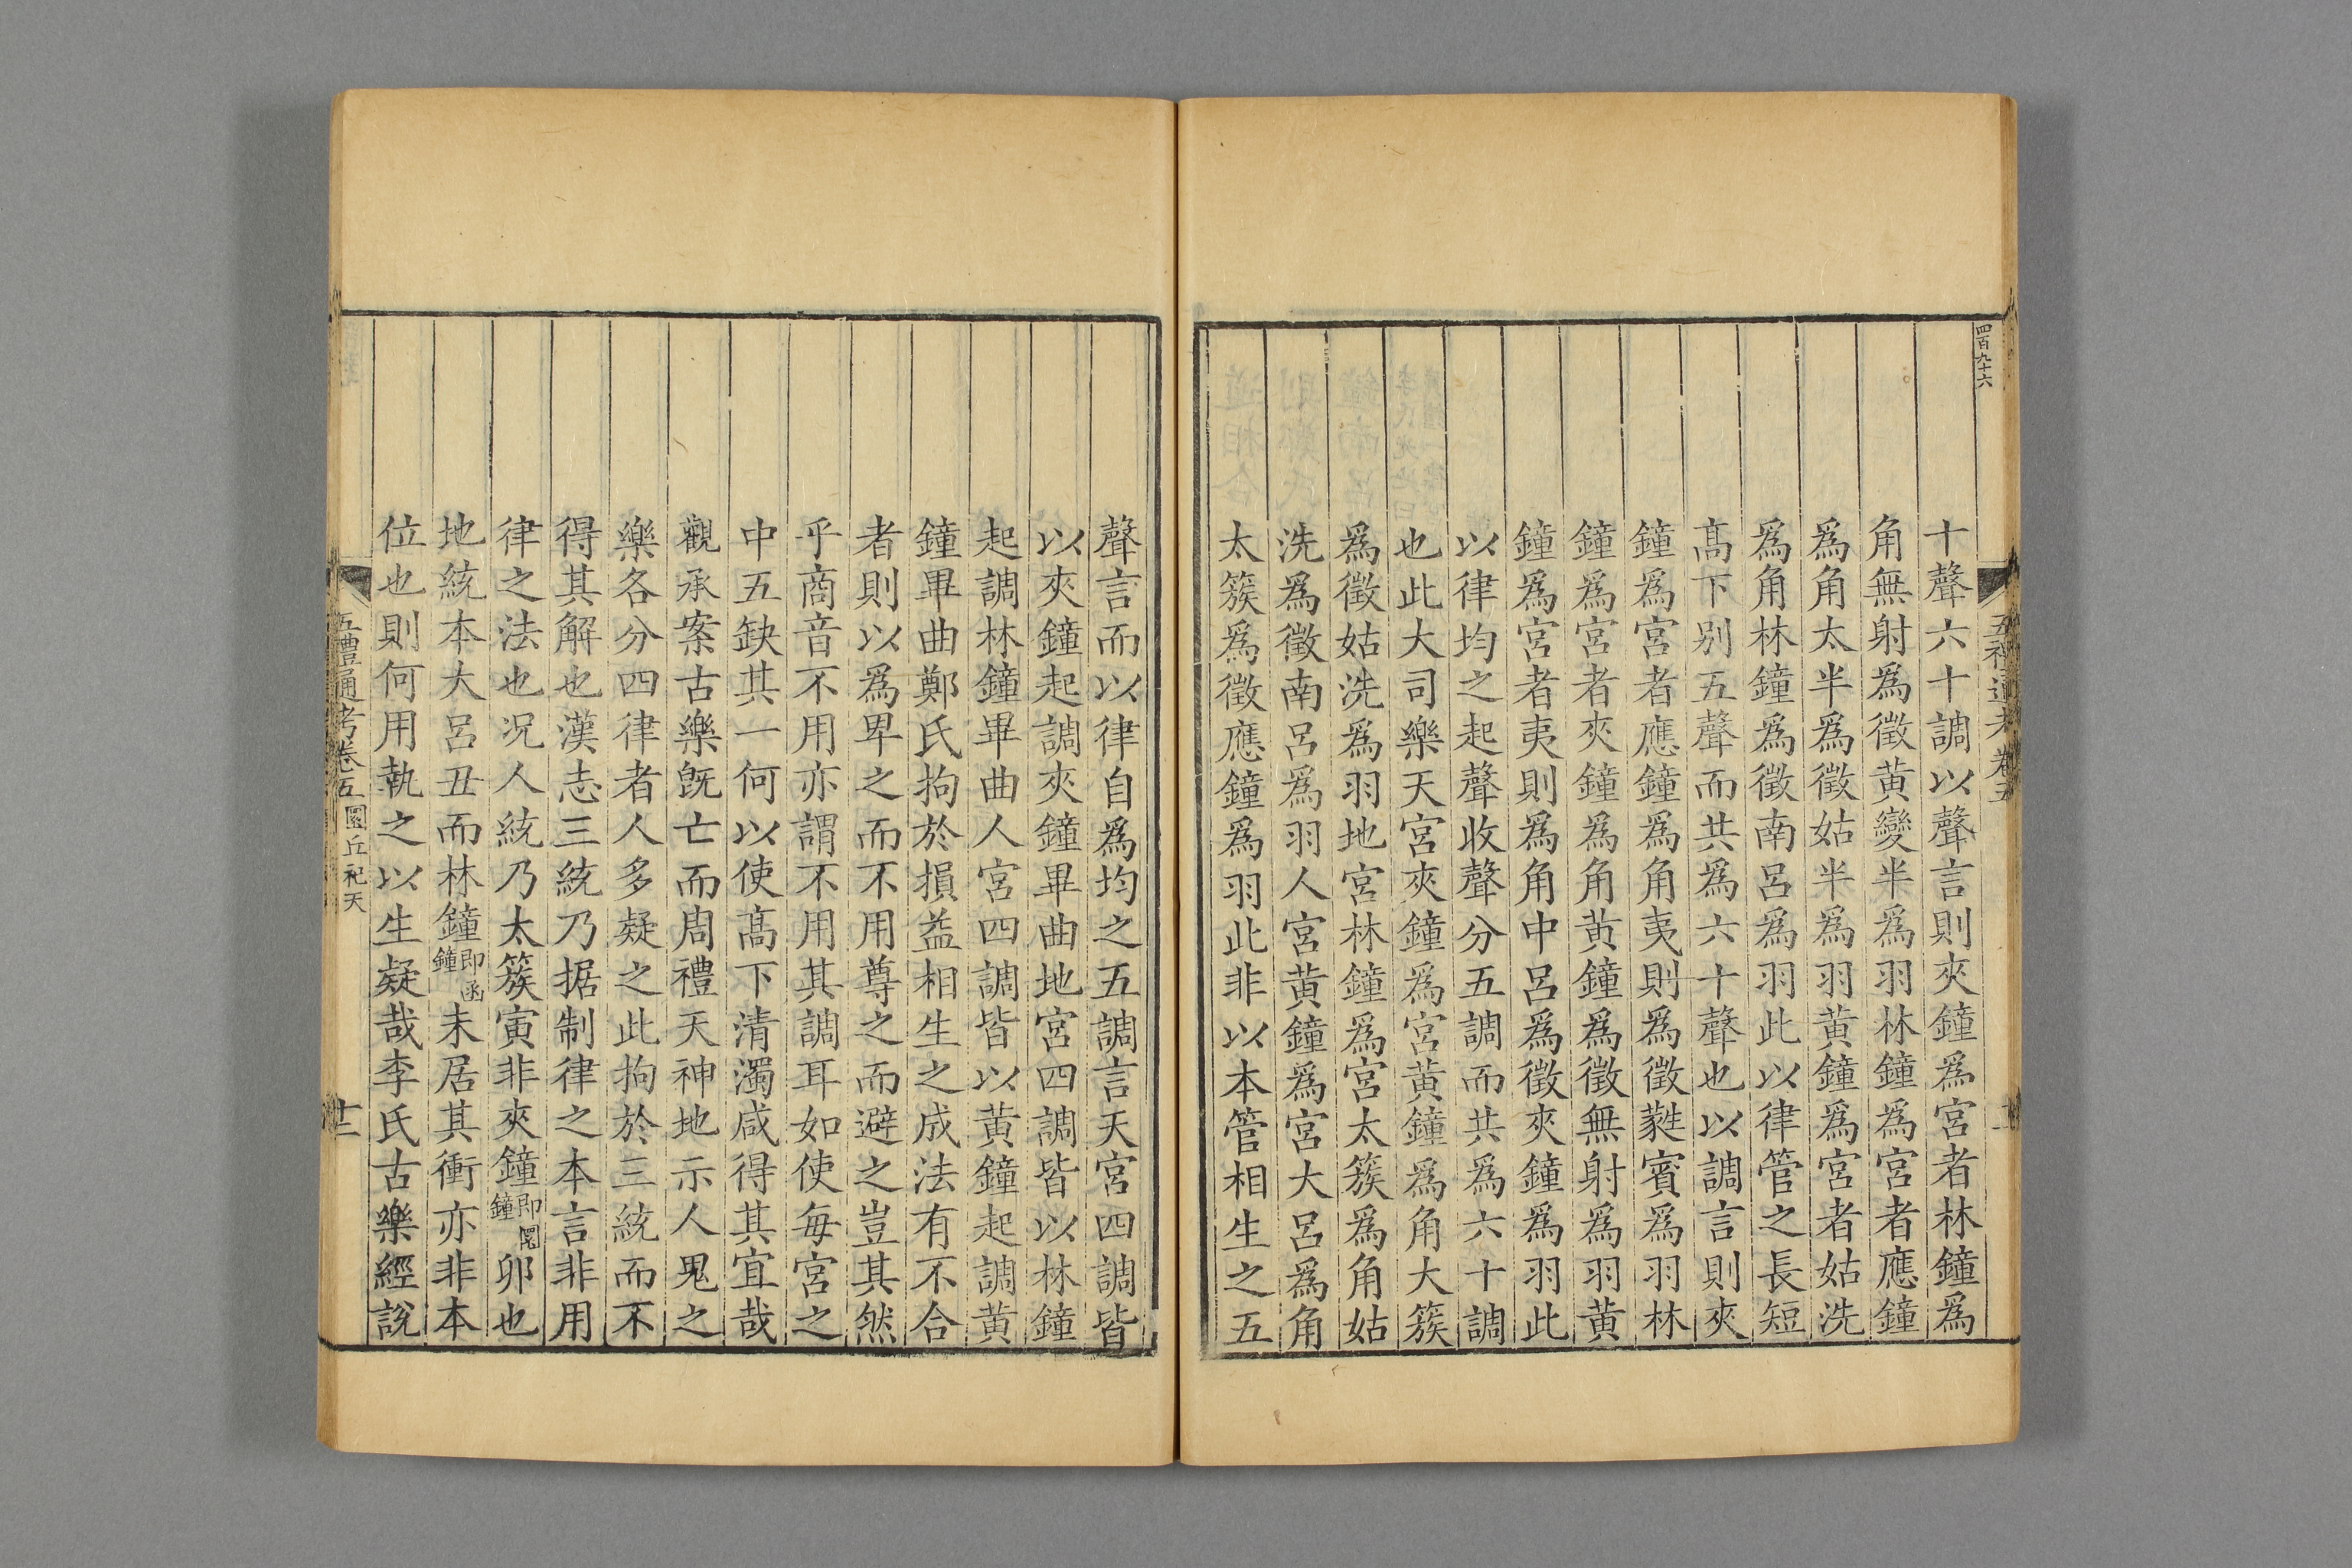 四百九十六
五禮通考卷五
十聲六十調以聲言則夾鐘爲宮者林鐘爲
角無射爲徵黃變半爲羽林鐘爲宮者應鐘
爲角太半爲徵姑半爲羽黃鐘爲宮者姑洗
爲角林鐘爲徵南呂爲羽此以律管之長短
髙下別五聲而共爲六十聲也以調言則夾
鐘爲宮者應鐘爲角夷則爲徵蕤賓爲羽林
鐘爲宮者夾鐘爲角黃鐘爲徵無射爲羽黃
鐘爲宮者夷則爲角中呂爲徵夾鐘爲羽此
以律均之起聲收聲分五調而共爲六十調
也此大司樂天宮夾鐘爲宮黃鐘爲角大簇
爲徵姑洗爲羽地宮林鐘爲宮太簇爲角姑
洗爲徵南呂爲羽人宮黃鐘爲宮大呂爲角
太簇爲徵應鐘爲羽此非以本管相生之五
聲言而以律自爲均之五調言天宮四調皆
以夾鐘起調夾鐘畢曲地宮四調皆以林鐘
起調林鐘畢曲人宮四調皆以黃鐘起調黃
鐘畢曲鄭氏拘於損益相生之成法有不合
者則以爲卑之而不用尊之而避之豈其然
乎商音不用亦謂不用其調耳如使每宮之
中五缺其一何以使髙下清濁咸得其宜哉
觀承案古樂旣亡而周禮天神地示人鬼之
樂各分四律者人多疑之此拘於三統而不
得其解也漢志三統乃据制律之本言非用
律之法也况人統乃太簇寅非夾鐘即圜鐘卯也
地統本大呂丑而林鐘即函鐘未居其衝亦非本
位也則何用執之以生疑哉李氏古樂經說
五禮通考卷五 圜丘祀天 十二